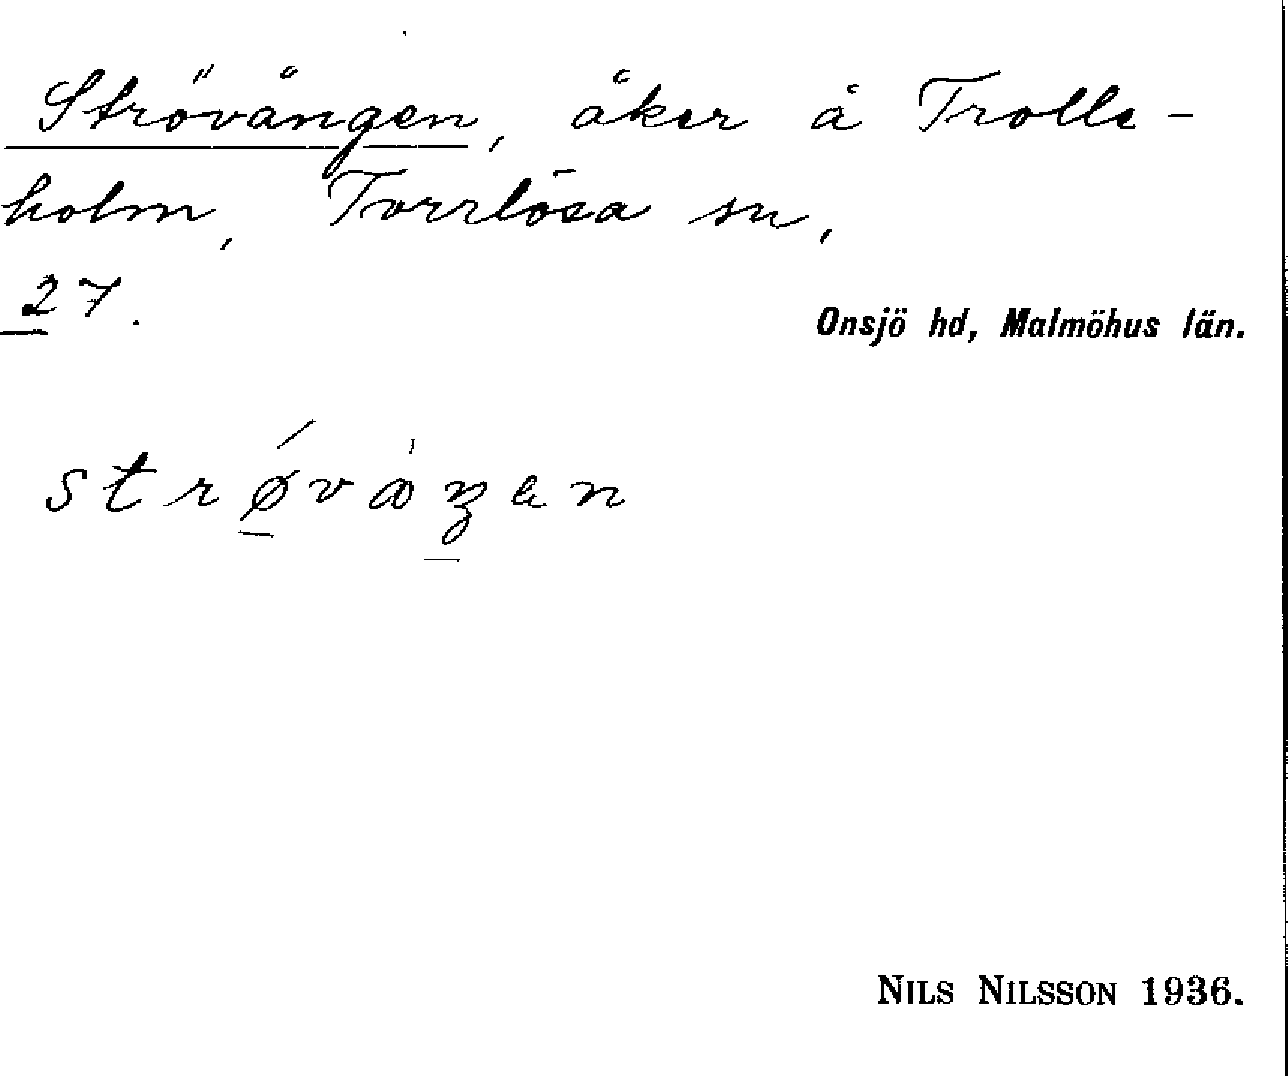 Strövången, åker å Trolle-
holm, Torrlösa sn,
27.
Onsjö hd, Malmöhus län.
strøvåŋen
NILS NILSSON 1936.